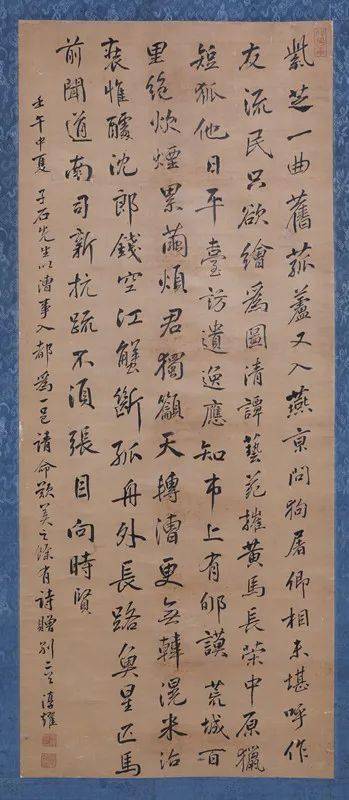 紫芝一曲舊菰蘆又入燕京問狗屠卿相未堪呼作
友流民只欲繪為圖清譚藝苑摧黃馬長策中原獵
短狐他日平臺訪遺逸應知市上有郇謨 荒城百
里絕炊煙累繭煩君獨籲天轉漕更無韓滉米治
裝惟醵沈郎錢空江蟹斷孤舟外長路星匹馬
前聞道南司新抗疏不須張目向時賢
壬午中夏 子石先生以漕事入都為一邑請命歎美之餘有詩贈別 淳耀